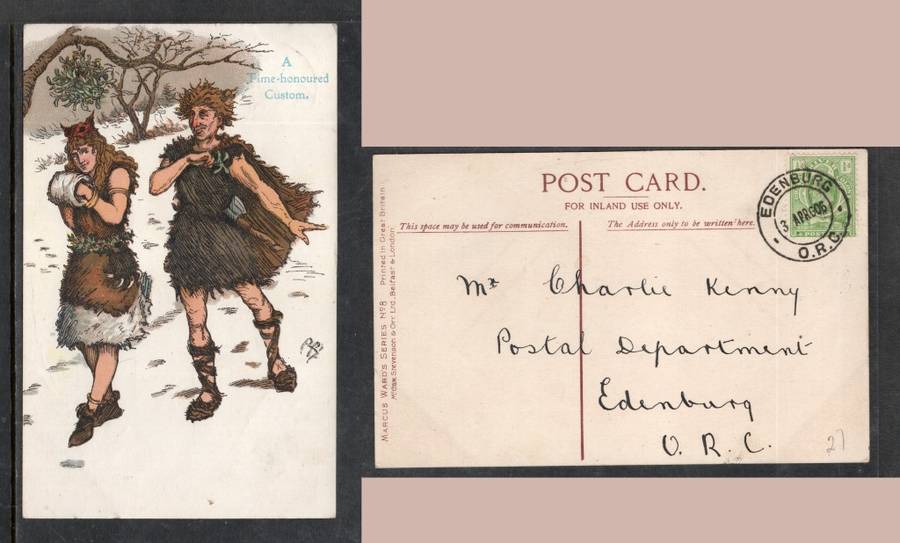 A
Time-honoured
Custom.
POST CARD.
FOR INLAND USE ONLY.
This space may be used for communication.
The Address only to be written here.
MARCUS WARD'S SERIES Nº8 Printed in Great Britain
McCaw, Stevenson & Orr Ltd, Belfast & London
EDENBURG
O.R.C.
Mr Charlie Kenny
Postal Department
Edenburg
O. R. C.
27